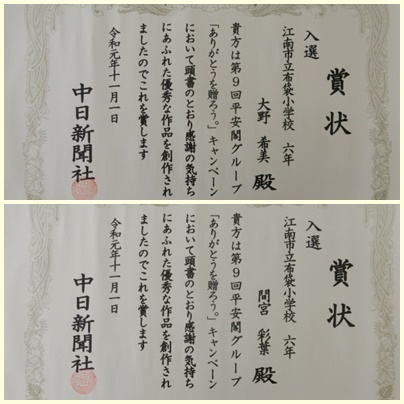 賞状
入選
江南市立布袋小学校 六年
大野 希美 殿
貴方は第9回平安閣グループ
「ありがとうを贈ろう。」キャンペーン
において頭書のとおり感謝の気持ち
にあふれた優秀な作品を創作され
ましたのでこれを賞します
令和元年十一月一日
中日新聞社
賞状
入選
江南市立布袋小学校 六年
間宮 彩葉 殿
貴方は第9回平安閣グループ
「ありがとうを贈ろう。」キャンペーン
において頭書のとおり感謝の気持ち
にあふれた優秀な作品を創作され
ましたのでこれを賞します
令和元年十一月一日
中日新聞社